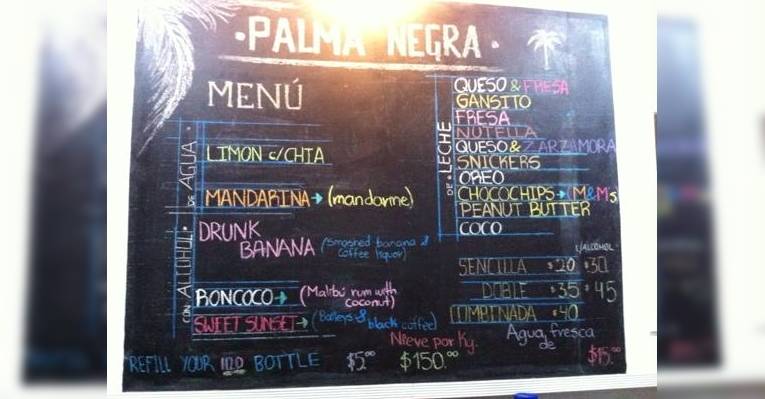 PALMA NEGRA
MENÚ
DE AGUA
LIMON c/CHIA
MANDARINA → (mandarine)
CON ALCOHOL
DRUNK
BANANA (Smashed banana &
coffee liquor)
RONCOCO → (Malibú rum with
coconut)
SWEET SUNSET → (Baileys & black coffee)
DE LECHE
QUESO & FRESA
GANSITO
FRESA
NUTELLA
QUESO & ZARZAMORA
SNICKERS
OREO
CHOCOCHIPS → (M&Ms)
PEANUT BUTTER
COCO
c/ALCOHOL
SENCILLA $20 $30
DOBLE $35 $45
COMBINADA $40
Nieve por Kg. $150.00
Agua fresca
de $15.00
REFILL YOUR H2O BOTTLE $5.00